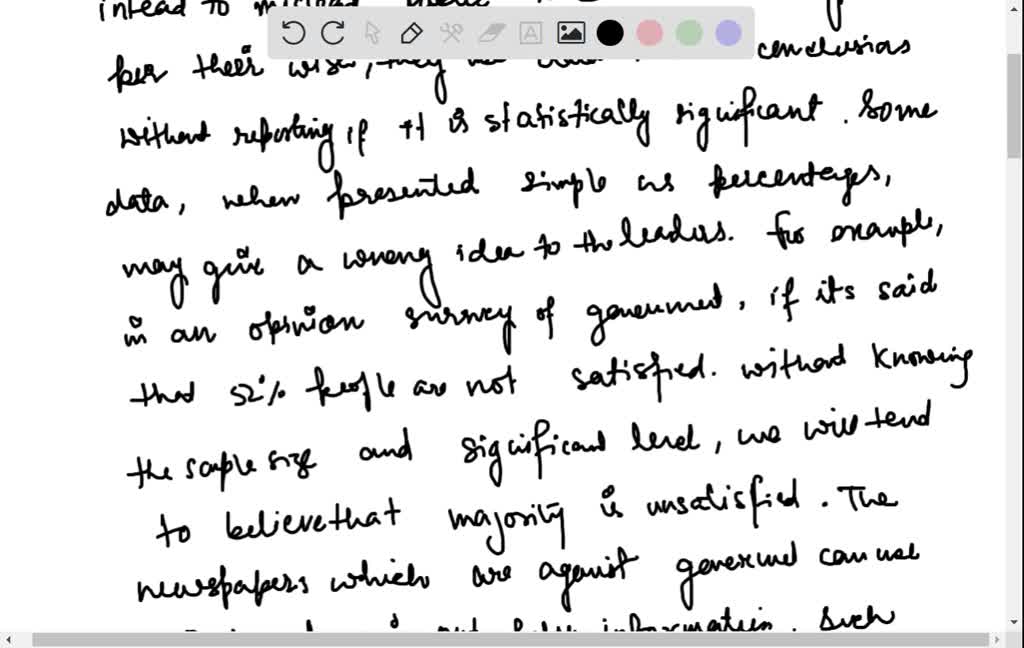 intead to
per their wise, they conclusions
without reporting if it is statistically significant. Some
data, when presented simple as percentages,
may give a wrong idea to the leaders. For example,
in an opinion survey of government, if its said
that 52% people are not satisfied. without knowing
the sample size and significant level, we will tend
to believe that majority is unsatisfied. The
newspapers which are against government can use
information. Such